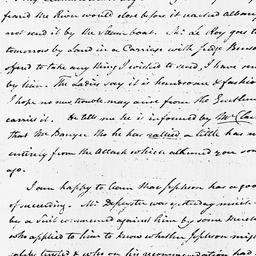 feared the River would close before it reached Albany
not send it by the Steam boat. Mr Le Roy goes to
tomorrow by Land in a Carriage with Judge Benson
offered to take any thing I wished to send, I have sent
by him. The Ladies say it is handsome & fashion
I hope no new trouble may arise from the Gentleman
carries it. He tells me he is informed by Mr Clark
that Mr Banyer tho he has rallied a little has n
entirely from the Attack which alarmed you som
ago.
I am happy to learn that Jephson has a good
of succeeding. Mr Depeyster was yesterday much
by a Suit commenced against him by some Merch
who applied to him to know whether Jephson migh
safely trusted & who on his recommendation had